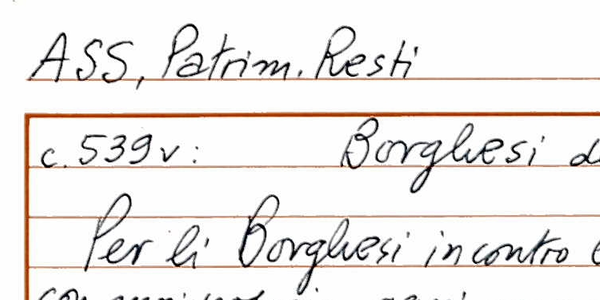 ASS, Patrim. Resti
c. 539v: Borghesi
Per li Borghesi incontro